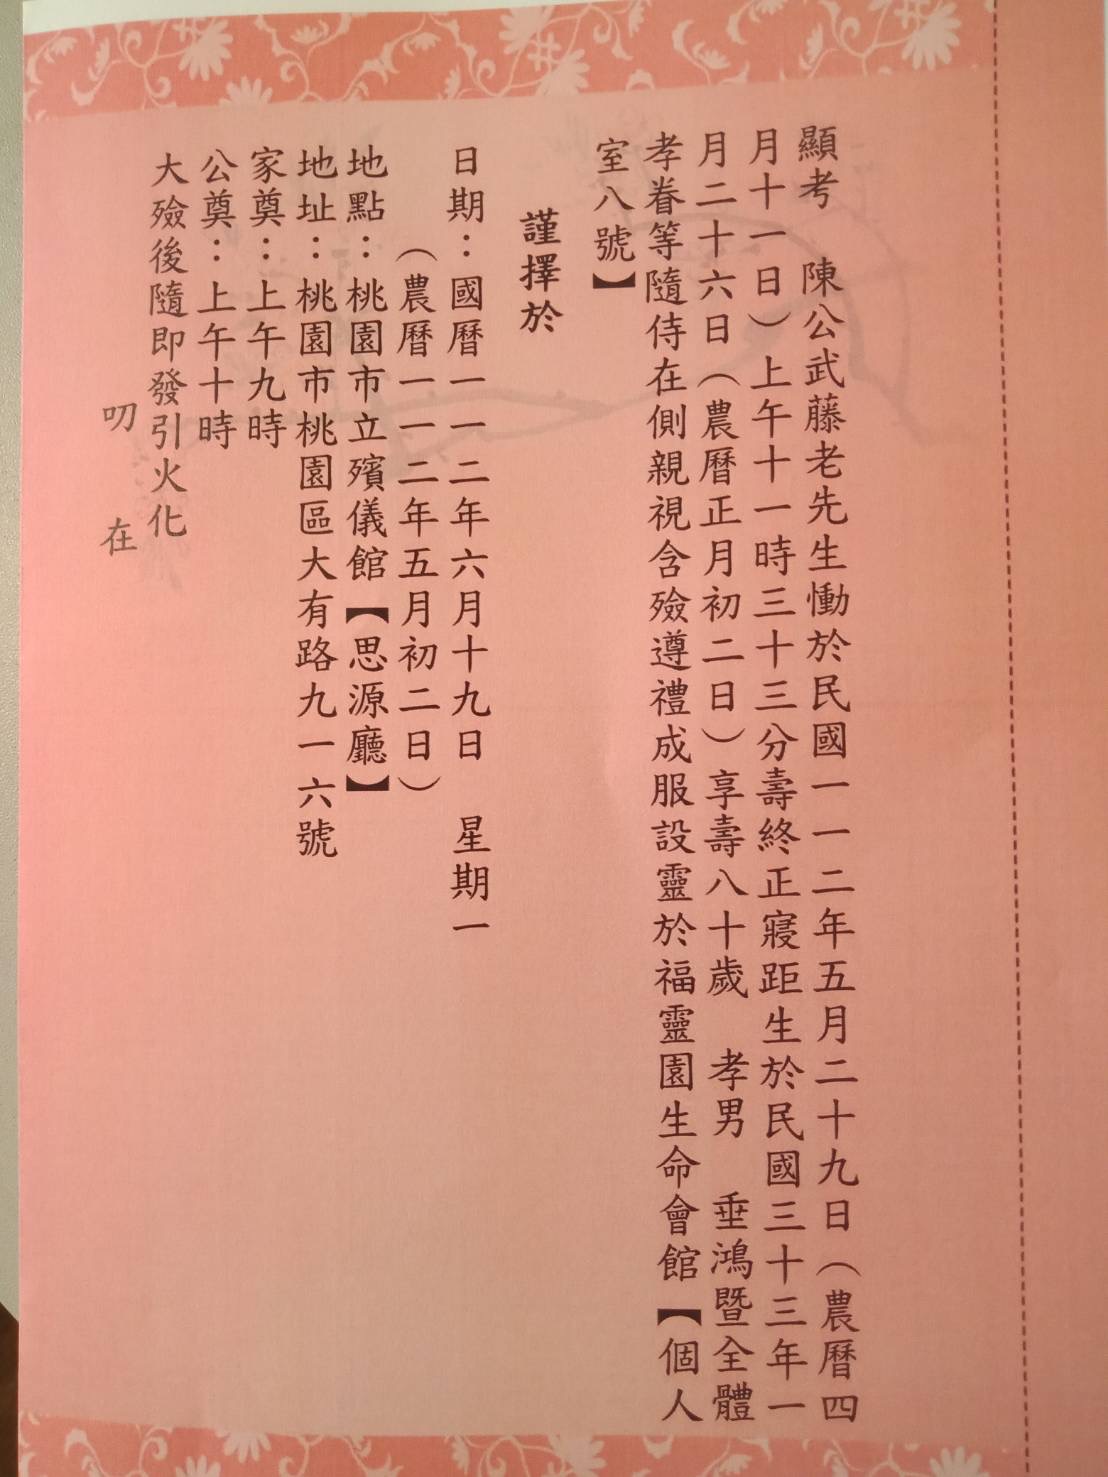 顯考　陳公武藤老先生慟於民國一一二年五月二十九日（農曆四
月十一日）上午十一時三十三分壽終正寢距生於民國三十三年一
月二十六日（農曆正月初二日）享壽八十歲　孝男　垂鴻暨全體
孝眷等隨侍在側親視含殮遵禮成服設靈於福靈園生命會館【個人
室八號】
謹擇於
日期：國曆一一二年六月十九日　星期一
（農曆一一二年五月初二日）
地點：桃園市立殯儀館【思源廳】
地址：桃園市桃園區大有路九一六號
家奠：上午九時
公奠：上午十時
大殮後隨即發引火化
叨　在